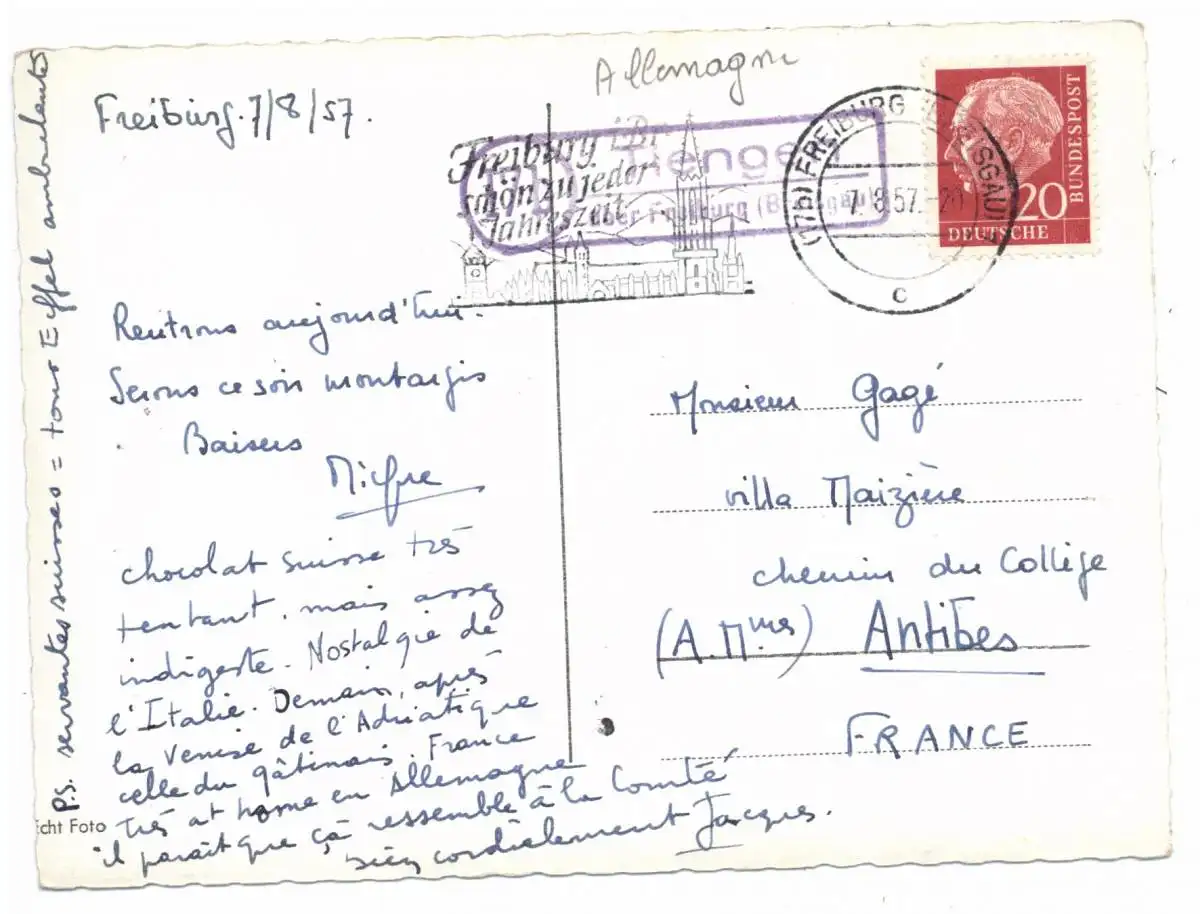 Allemagne
Freiburg. 7/8/57.
Freiburg i Br
schön zu jeder
Jahreszeit
(17b)
über Freiburg (Breisgau)
(17b) FREIBURG (BREISGAU)
7. 8. 57. - 20
c
20
DEUTSCHE
BUNDESPOST
Rentrons aujourd'hui.
Serons ce soir montargis
Baisers
chocolat suisse très
tentant, mais assez
indigeste. Nostalgie de
l'Italie. Demain, après
la Venise de l'Adriatique
celle du gâtinais. France
très at home en Allemagne
il paraît que çà ressemble à la Comté
bien cordialement Jacques.
P.S. servantes suisses = tours Eiffel ambulantes
Echt Foto
Monsieur Gagé
villa Maizière
chemin du Collège
(A. Mmes) Antibes
FRANCE